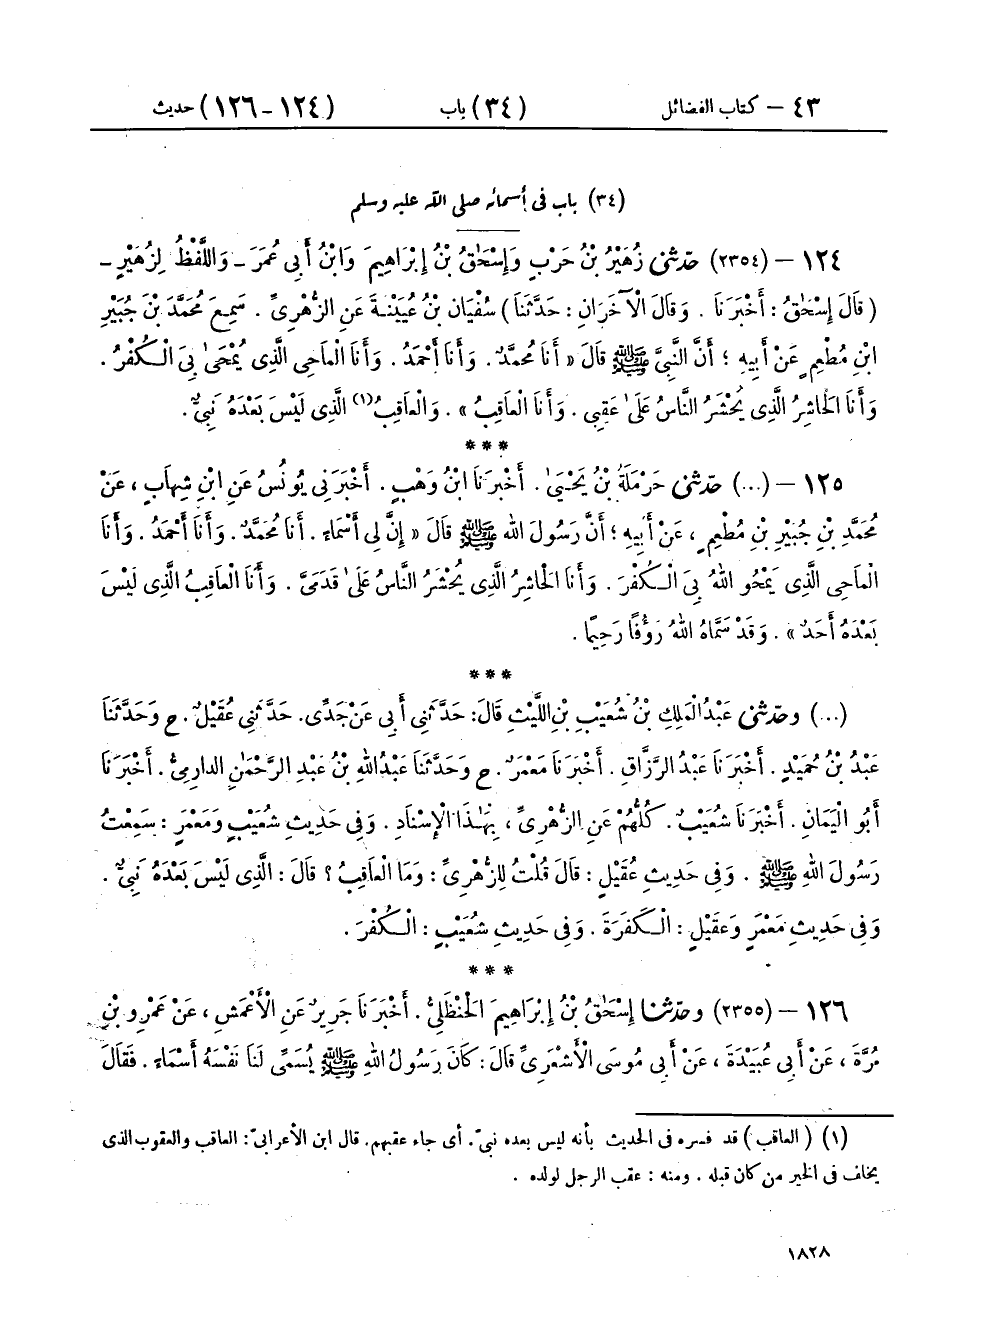 ٤٣ – كتاب الفضائل (٣٤) باب (١٢٤ – ١٢٦) حديث
(٣٤) باب فى أسمائه صلى الله عليه وسلم
١٢٤ – (٢٣٥٤) حَدَّثَنِى زُهَيْرُ بْنُ حَرْبٍ وَإِسْحَٰقُ بْنُ إِبْرَاهِيمَ وَابْنُ أَبِى عُمَرَ – وَاللَّفْظُ لِزُهَيْرٍ –
( قَالَ إِسْحَٰقُ : أَخْبَرَنَا . وَقَالَ الْآخَرَانِ : حَدَّثَنَا ) سُفْيَانُ بْنُ عُيَيْنَةَ عَنِ الزُّهْرِىِّ . سَمِعَ مُحَمَّدَ بْنَ جُبَيْرِ
ابْنِ مُطْعِمٍ عَنْ أَبِيهِ ؛ أَنَّ النَّبِىَّ ﷺ قَالَ « أَنَا مُحَمَّدٌ . وَأَنَا أَحْمَدُ . وَأَنَا الْمَاحِى الَّذِى يُمْحَىٰ بِىَ الْكُفْرُ .
وَأَنَا الْحَاشِرُ الَّذِى يُحْشَرُ النَّاسُ عَلَىٰ عَقِبِى . وَأَنَا الْعَاقِبُ » . وَالْعَاقِبُ(١) الَّذِى لَيْسَ بَعْدَهُ نَبِىٌّ .
* * *
١٢٥ – (...) حَدَّثَنِى حَرْمَلَةُ بْنُ يَحْيَىٰ . أَخْبَرَنَا ابْنُ وَهْبٍ . أَخْبَرَنِى يُونُسُ عَنِ ابْنِ شِهَابٍ ، عَنْ
مُحَمَّدِ بْنِ جُبَيْرِ بْنِ مُطْعِمٍ ، عَنْ أَبِيهِ ؛ أَنَّ رَسُولَ اللهِ ﷺ قَالَ « إِنَّ لِى أَسْمَاءً . أَنَا مُحَمَّدٌ . وَأَنَا أَحْمَدُ . وَأَنَا
الْمَاحِى الَّذِى يَمْحُو اللهُ بِىَ الْكُفْرَ . وَأَنَا الْحَاشِرُ الَّذِى يُحْشَرُ النَّاسُ عَلَىٰ قَدَمَىَّ . وَأَنَا الْعَاقِبُ الَّذِى لَيْسَ
بَعْدَهُ أَحَدٌ » . وَقَدْ سَمَّاهُ اللهُ رَؤُفًا رَحِيمًا .
* * *
(...) وحَدَّثَنِى عَبْدُ الْمَلِكِ بْنُ شُعَيْبِ بْنِ اللَّيْثِ قَالَ : حَدَّثَنِى أَبِى عَنْ جَدِّى . حَدَّثَنِى عُقَيْلٌ . ح وَحَدَّثَنَا
عَبْدُ بْنُ حُمَيْدٍ . أَخْبَرَنَا عَبْدُ الرَّزَّاقِ . أَخْبَرَنَا مَعْمَرٌ . ح وَحَدَّثَنَا عَبْدُ اللهِ بْنُ عَبْدِ الرَّحْمَٰنِ الدارِمِىُّ . أَخْبَرَنَا
أَبُو الْيَمَانِ . أَخْبَرَنَا شُعَيْبٌ . كُلُّهُمْ عَنِ الزُّهْرِىِّ ، بِهَٰذَا الْإِسْنَادِ . وَفِى حَدِيثِ شُعَيْبٍ وَمَعْمَرٍ : سَمِعْتُ
رَسُولَ اللهِ ﷺ . وَفِى حَدِيثِ عُقَيْلٍ : قَالَ قُلْتُ لِلزُّهْرِىِّ : وَمَا الْعَاقِبُ ؟ قَالَ : الَّذِى لَيْسَ بَعْدَهُ نَبِىٌّ .
وَفِى حَدِيثِ مَعْمَرٍ وَعُقَيْلٍ : الْكَفَرَةَ . وَفِى حَدِيثِ شُعَيْبٍ : الْكُفْرَ .
* * *
١٢٦ – (٢٣٥٥) وحَدَّثَنَا إِسْحَٰقُ بْنُ إِبْرَاهِيمَ الْحَنْظَلِىُّ . أَخْبَرَنَا جَرِيرٌ عَنِ الْأَعْمَشِ ، عَنْ عَمْرِو بْنِ
مُرَّةَ ، عَنْ أَبِى عُبَيْدَةَ ، عَنْ أَبِى مُوسَى الْأَشْعَرِىِّ قَالَ : كَانَ رَسُولُ اللهِ ﷺ يُسَمِّى لَنَا نَفْسَهُ أَسْمَاءً . فَقَالَ
(١) ( العاقب ) قد فسره فى الحديث بأنه ليس بعده نبىّ . أى جاء عقبهم . قال ابن الأعرابىّ : العاقب والعقوب الذى
يخلف فى الخير من كان قبله . ومنه : عقب الرجل لولده .
١٨٢٨